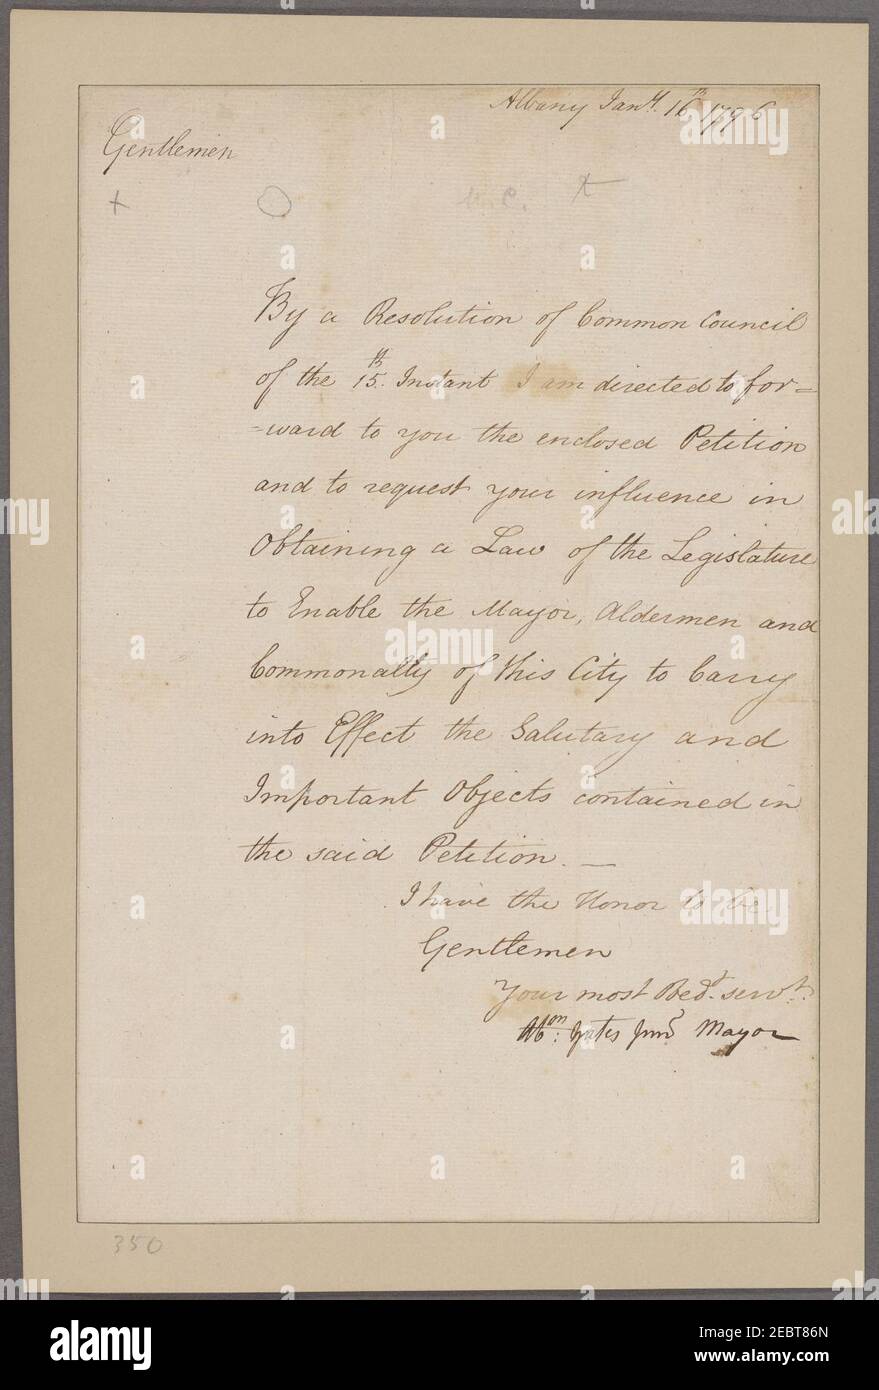 Albany Jany. 16th 1796
Gentlemen
By a Resolution of Common Council
of the 15th. Instant I am directed to for=
=ward to you the enclosed Petition
and to request your influence in
Obtaining a Law of the Legislature
to Enable the Mayor, Aldermen and
Commonalty of this City to Carry
into Effect the Salutary and
Important Objects contained in
the said Petition. —
I have the Honor to be
Gentlemen
Your most Bedt. servt.
Abm: Yates Junr Mayor
350
alamy
Image ID: 2EBT86N
www.alamy.com